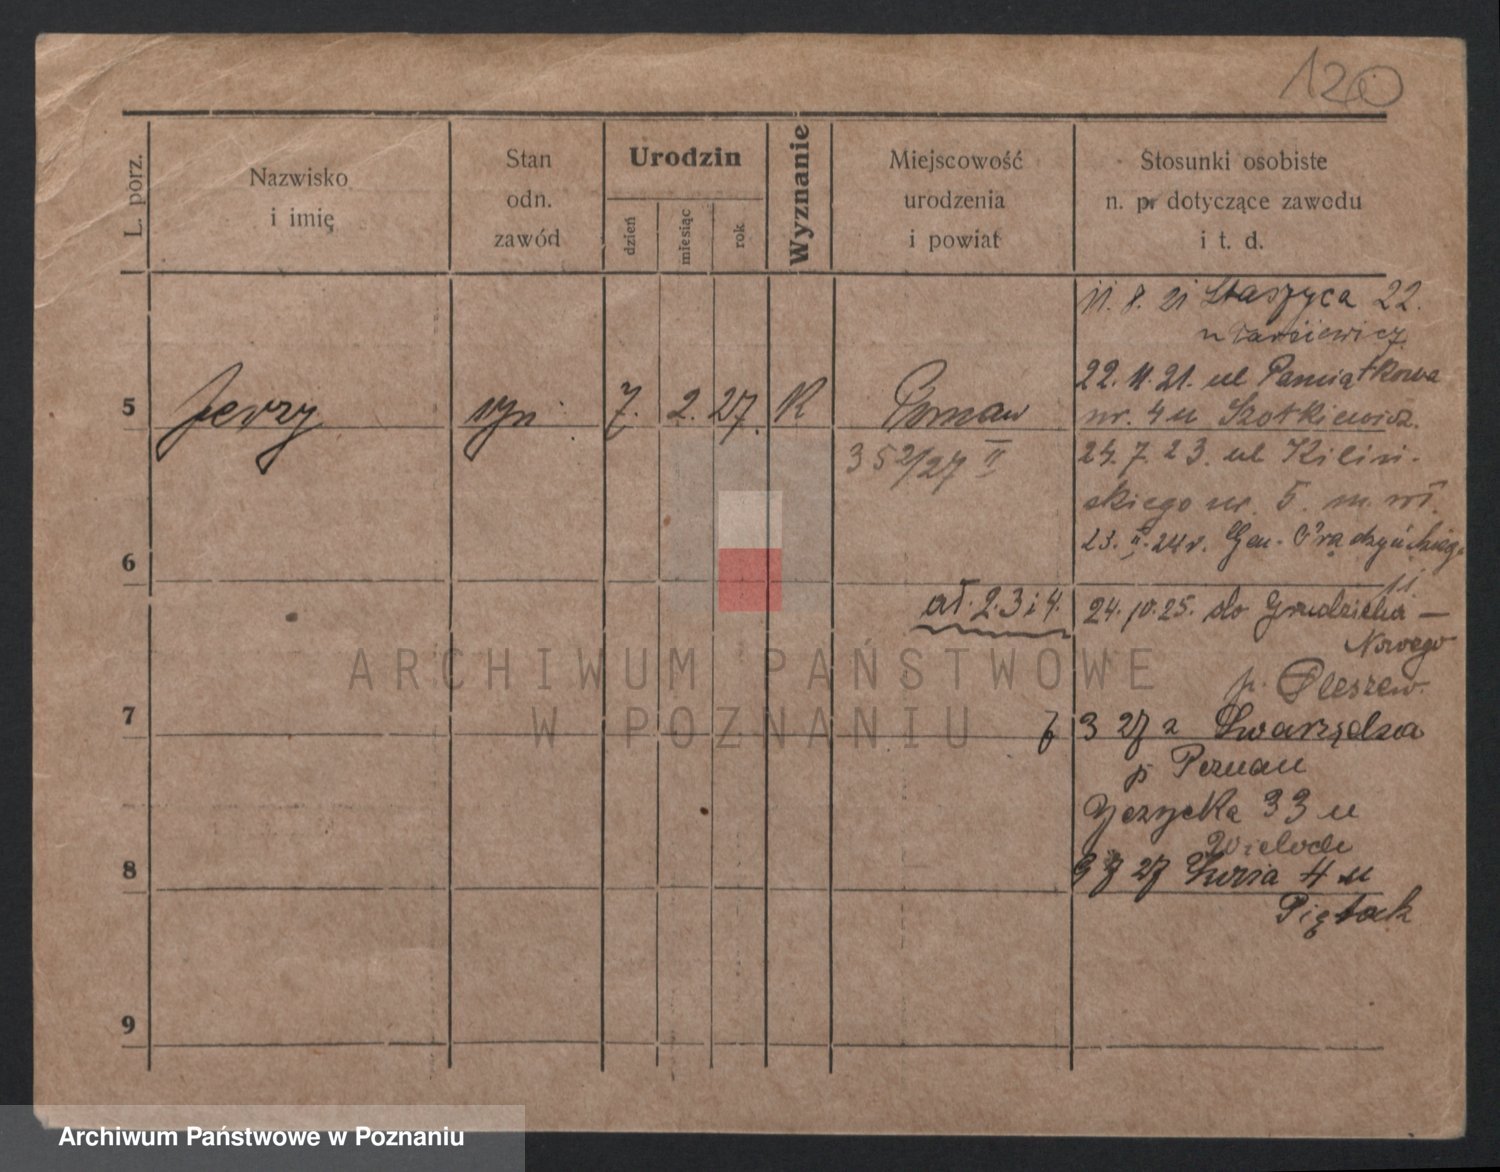 120
L. porz.
Nazwisko
i imię
Stan
odn.
zawód
Urodzin
dzień
miesiąc
rok
Wyznanie
Miejscowość
urodzenia
i powiat
Stosunki osobiste
n. p. dotyczące zawodu
i t. d.
11. 8. 21 Staszyca 22.
22. 11. 21. ul Pamiątkowa
nr. 4 u Szotkiewicz.
5
Jerzy
syn
7.
2.
27.
K
Poznań
352/27 II
24. 7. 23. ul Kiliń-
skiego nr. 5. m. wł.
23. II. 24 r. Gen. Prądzyńskiego
6
ał. 2. 3 i 4.
24. 10. 25. do Grudzielca
Nowego
p. Pleszew.
7
7 3 27 z Swarzędza
p Poznań
Jeżycka 33 u
8
3 7 27 4 u
Piątack
9
ARCHIWUM PAŃSTWOWE
W POZNANIU
Archiwum Państwowe w Poznaniu